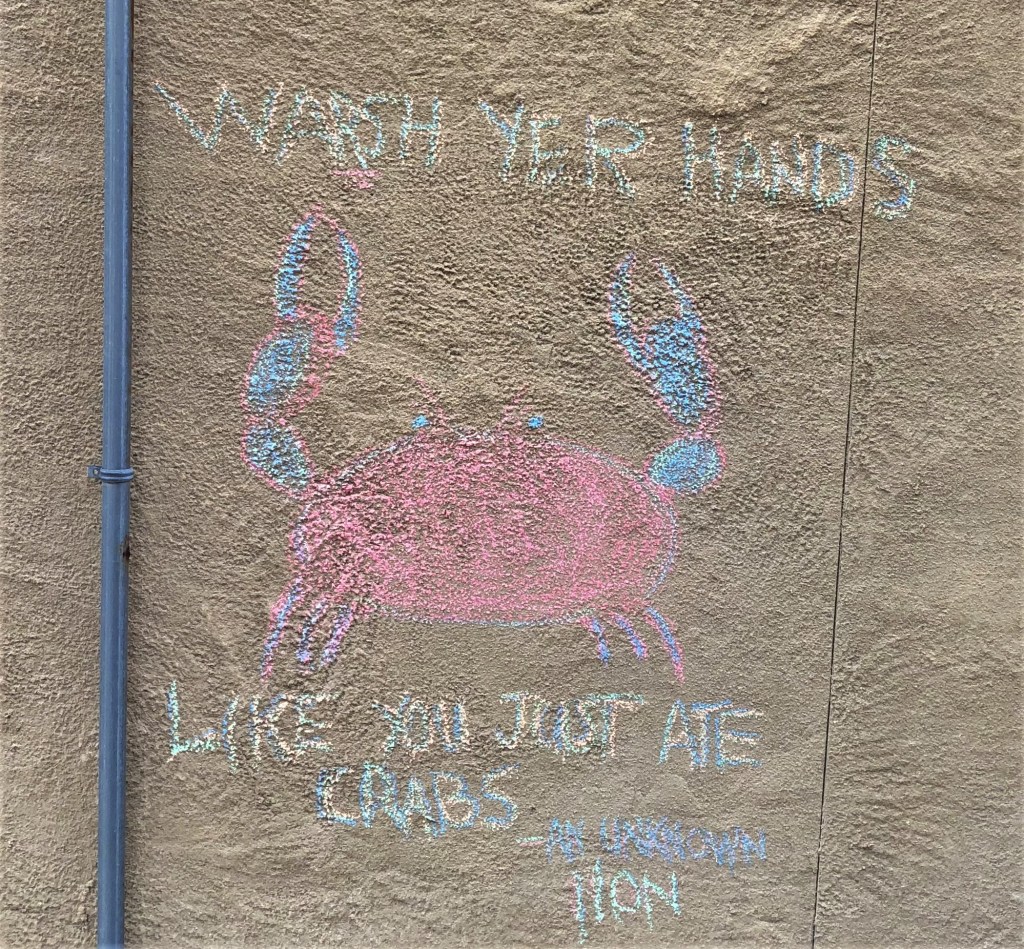 WASH YER HANDS
LIKE YOU JUST ATE
CRABS
-AN UNKNOWN